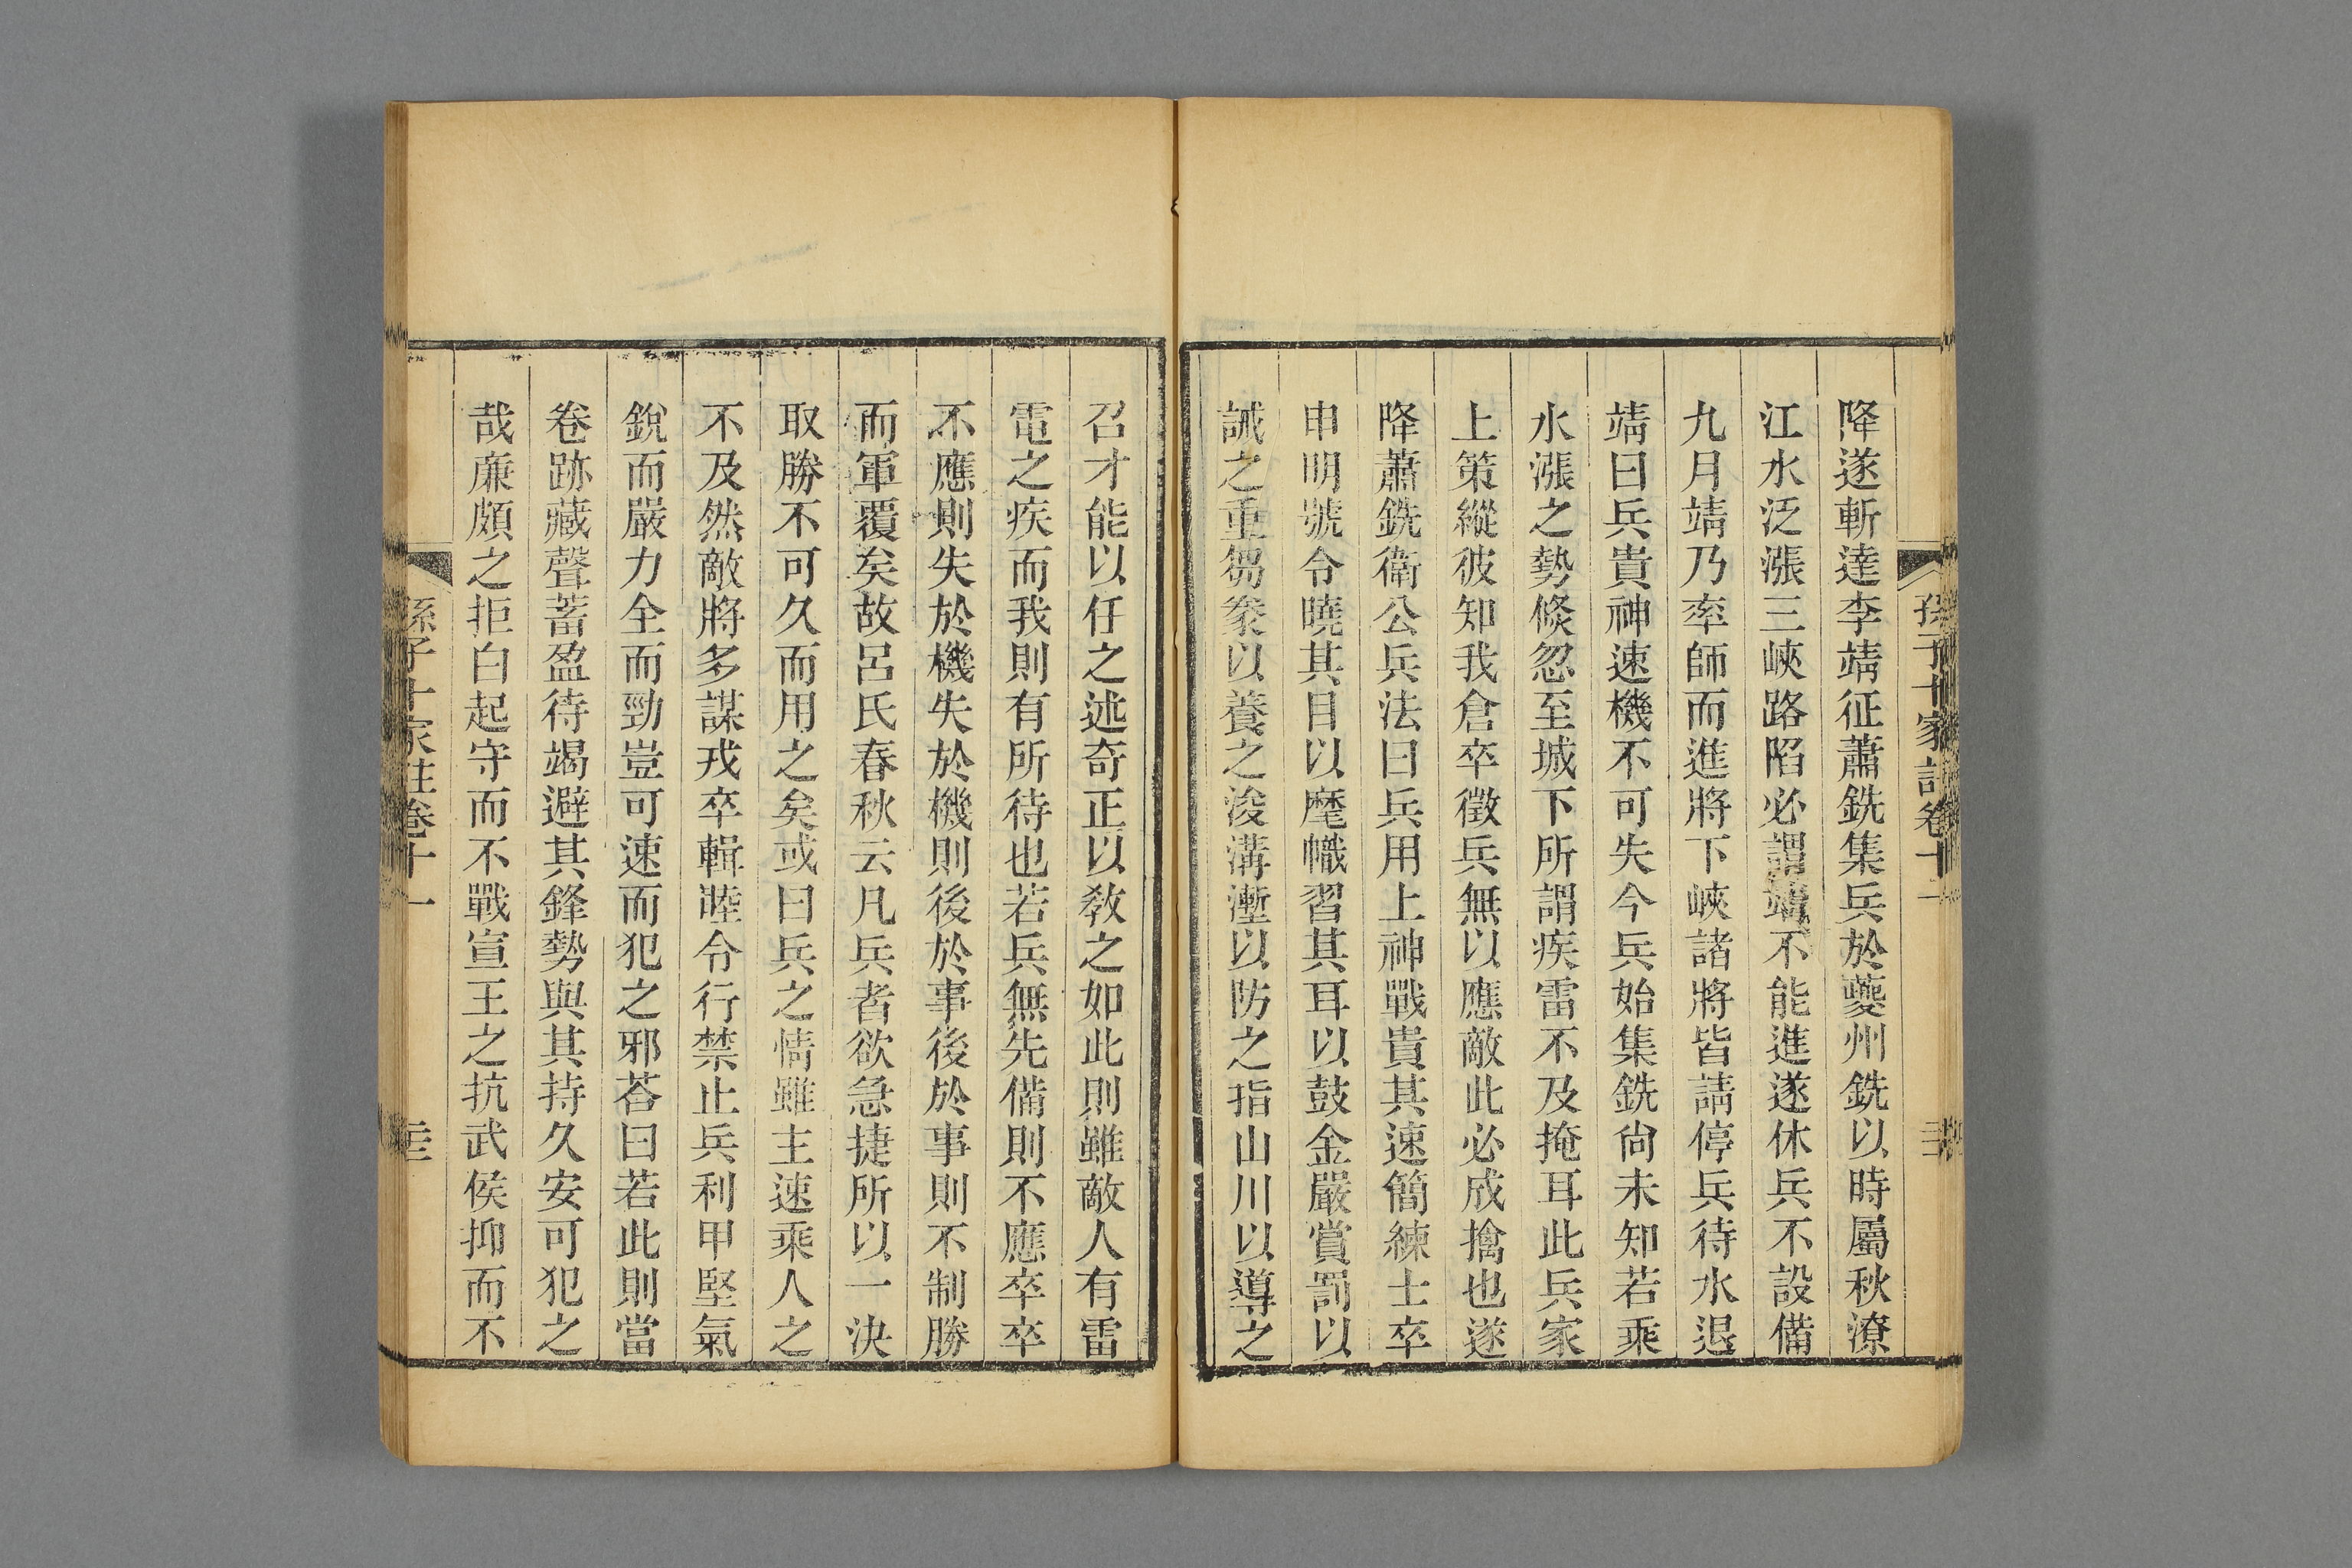 孫子十家註卷十一
降遂斬達李靖征蕭銑集兵於夔州銑以時屬秋潦
江水泛漲三峽路陷必謂靖不能進遂休兵不設備
九月靖乃率師而進將下峽諸將皆請停兵待水退
靖曰兵貴神速機不可失今兵始集銑尙未知若乘
水漲之勢倐忽至城下所謂疾雷不及掩耳此兵家
上策縱彼知我倉卒徵兵無以應敵此必成擒也遂
降蕭銑衛公兵法曰兵用上神戰貴其速簡練士卒
申明號令曉其目以麾幟習其耳以鼓金嚴賞罰以
誡之重芻豢以養之浚溝塹以防之指山川以導之
召才能以任之述奇正以敎之如此則雖敵人有雷
電之疾而我則有所待也若兵無先備則不應卒卒
不應則失於機失於機則後於事後於事則不制勝
而軍覆矣故呂氏春秋云凡兵者欲急捷所以一決
取勝不可久而用之矣或曰兵之情雖主速乘人之
不及然敵將多謀戎卒輯睦令行禁止兵利甲堅氣
銳而嚴力全而勁豈可速而犯之邪荅曰若此則當
卷跡藏聲蓄盈待竭避其鋒勢與其持久安可犯之
哉廉頗之拒白起守而不戰宣王之抗武侯抑而不
孫子十家註卷十一